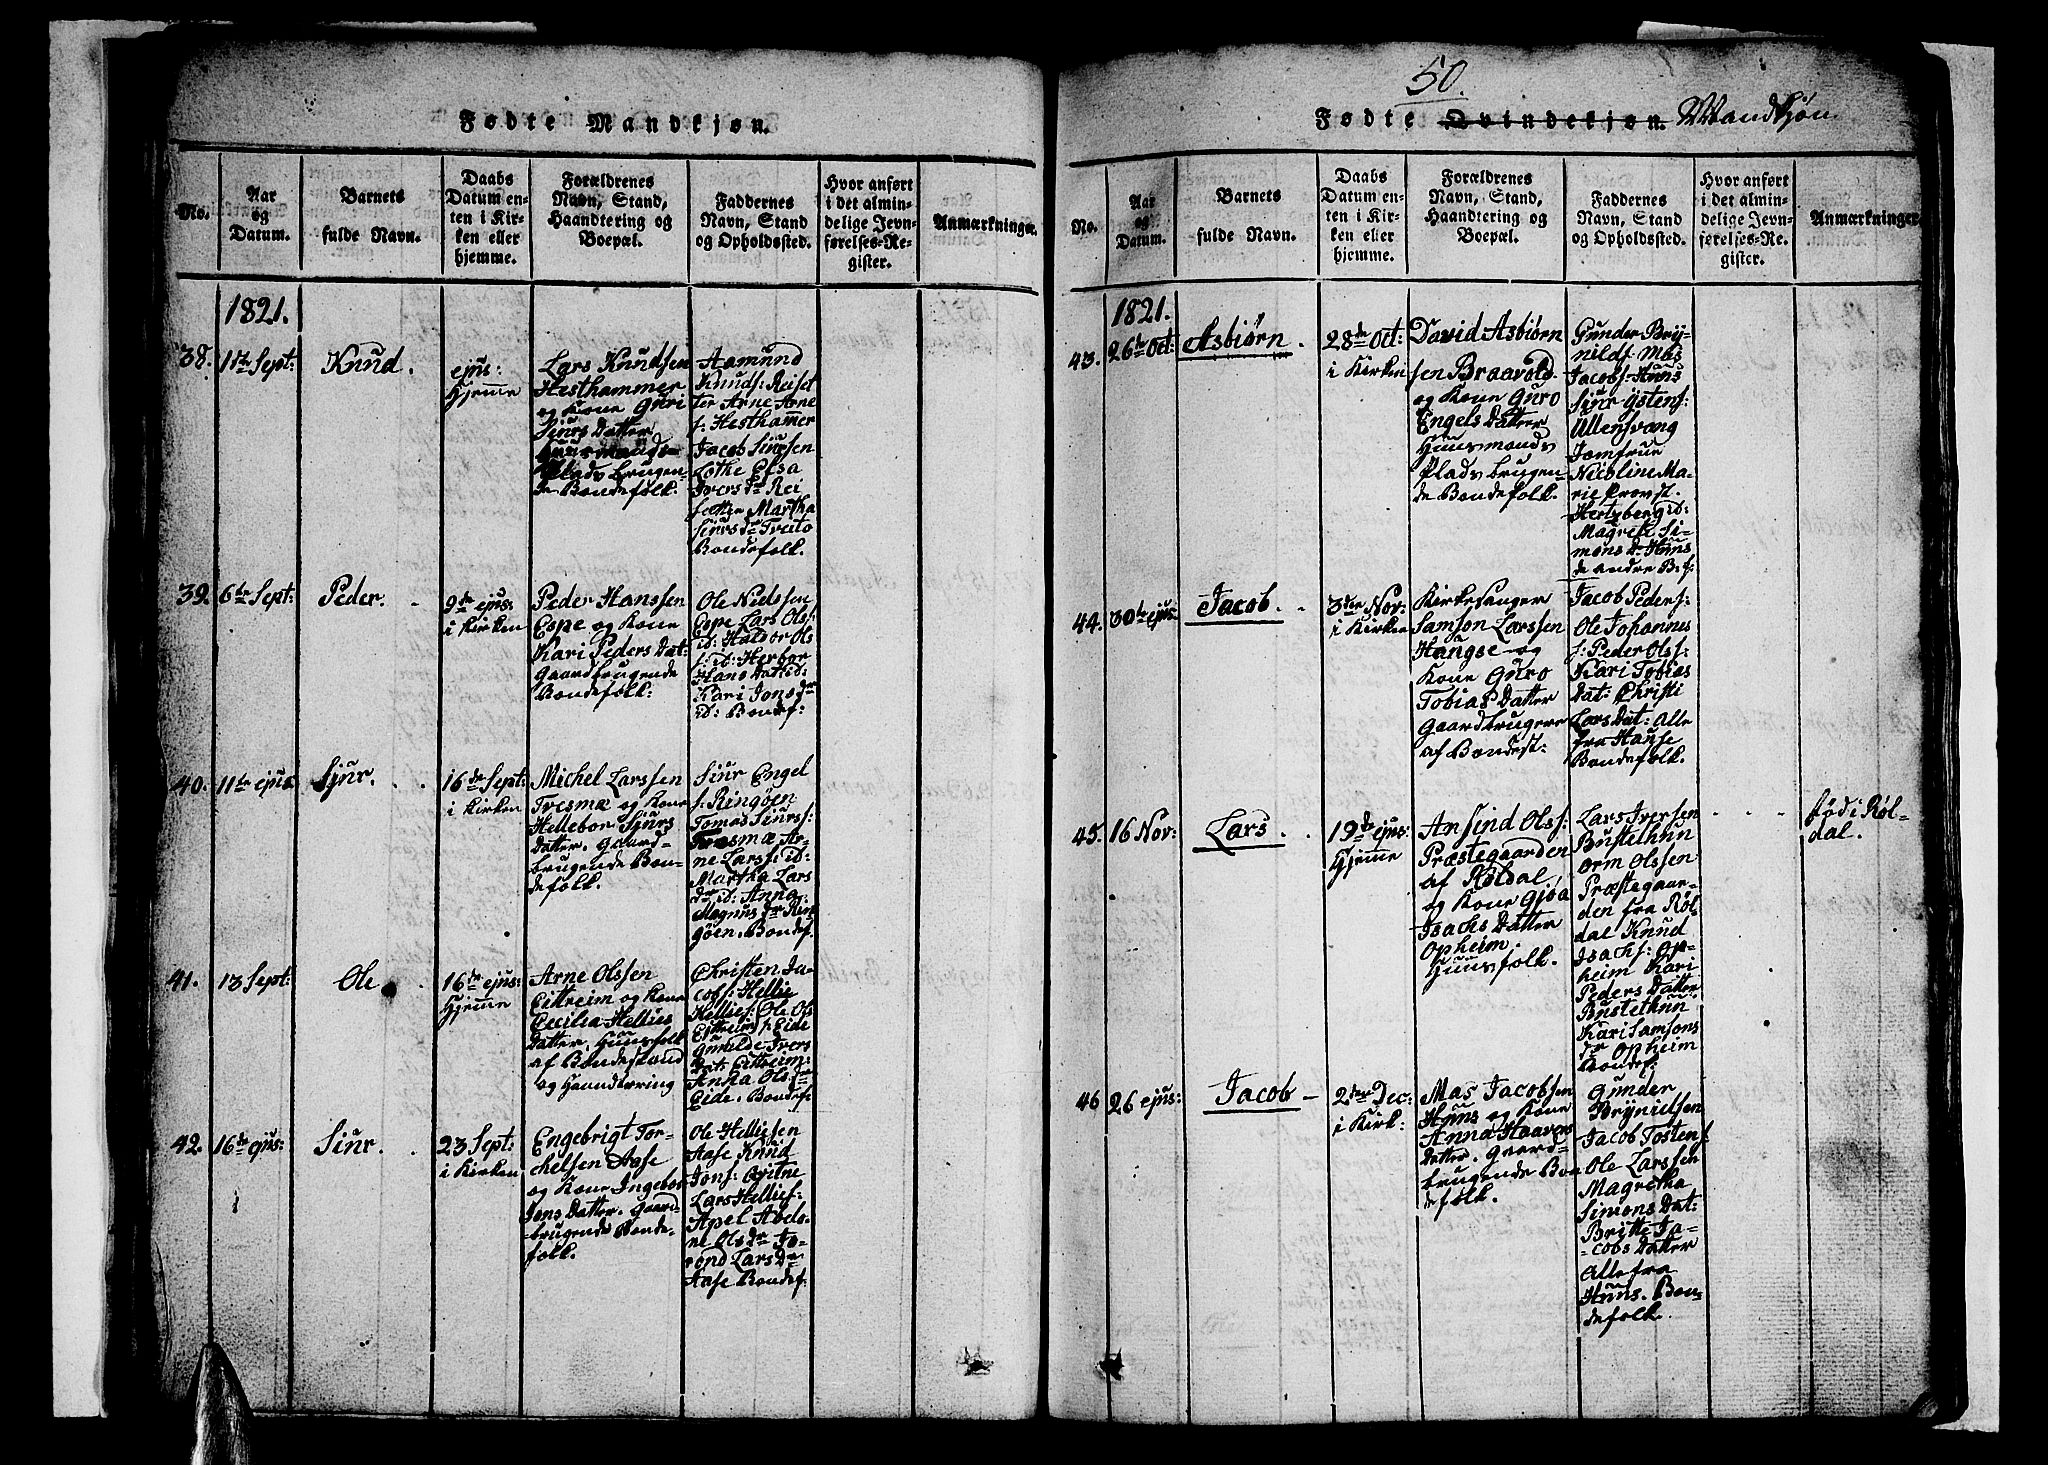 50.
Fødte Mandkjøn.
No.
Aar
og
Datum.
Barnets
fulde Navn.
Daabs
Datum en-
ten i Kir-
ken eller
hjemme.
Forældrenes
Navn, Stand,
Haandtering og
Boepæl.
Faddernes
Navn, Stand
og Opholdssted.
Hvor anført
i det almin-
delige Jevn-
førelses-Re-
gister.
Anmærkninger.
1821.
38.
11te Sept:
Knud.
ejus:
Hjemme
Lars Knudsen
Hesthammer
og Kone Guri
Siurs Datter
Huusmands-
Plads brugen
de Bondefolk.
Aamund
Knuds: Reiset
ter Arne Arne
s: Hesthammer
Jacob Siursen
Lothe Elsa
Ivers dr Rei
setter Martha
Siurs dr Freito
Bondefolk.
39.
6te Sept:
Peder.
9de ejus:
i Kirken
Peder Hanssen
Espe og Kone
Kari Peders Dat:
Gaardbrugende
Bondefolk:
Ole Nielssen
Espe Lars Ols:
id: Halvor Ols
s: id: Herbor
Hans Dat id:
Kari Jons dr
id: Bondef:
40.
11te ejus
Sjur.
16de Sept:
i Kirken
Michel Larssen
Tresmæ og Kone
Hellebor Sjurs
Datter. Gaard-
brugende Bon-
defolk.
Siur Engel
s: Ringøen
Tomas Siurs:
Tresmæ Ar-
ne Lars: id:
Martha Lars
dr id: Anna
Magnus dr Rin
gøen. Bondef.
41.
13 Sept:
Ole
16de ejus:
Hjemme
Arne Olssen
Eittreim og Kone
Cecilia Hellies
Datter, Huusfolk
af Bondestand
og Haandtæring
Christen Ja-
cobs: Hellie
Hellies: Ole Ols
Eittreim s: Eide
Gunilde Ivers
Dat: Eittreim:
Anna Ols dr
Eide. Bondef:
42.
16de ejus:
Siur.
23 Sept:
i Kirken
Engebrigt Tor-
chelsen Aase
og Kone Ingebor
Jons Datter. Gaard
brugende Bonde-
folk.
Ole Helliesen
Aase Knud
Jons: Opitne
Lars Hellies:
Apel Abelo-
ne Ols dr Jo-
rond Lars Dr
Aase Bondef:
Fødte Qvindekjøn. Mandkjøn
No.
Aar
og
Datum.
Barnets
fulde Navn.
Daabs
Datum en-
ten i Kir-
ken eller
hjemme.
Forældrenes
Navn, Stand,
Haandtering og
Boepæl.
Faddernes
Navn, Stand
og Opholdssted.
Hvor anført
i det almin-
delige Jevn-
førelses-Re-
gister.
Anmærkninger
1821.
43.
26te Oct:
Asbiørn
28de Oct:
i Kirken
David Asbiørn
sen Braavold.
og Kone Guro
Engels Datter
Huusmands
Plads brugen-
de Bondefolk.
Gunder Bry-
nilds: Mas
Jacobs: Huus
Siur Ystens:
Ullensvang
Jomfrue
Nicoline Ma-
rie Provst.
Hertzberg id:
Magrete Si-
mons Dr Huus
de andre B: f:
44.
30te ejus:
Jacob.
3die Nov:
i Kirken
Kirkesanger
Samson Larssen
Hangse og
Kone Guro
Tobias Datter
Gaardbrugere
af Bondest:
Jacob Peders:
Ole Johannes
s: Peder Ols:
Kari Tobias
Dat: Christi
Lars Dat: Alle
fra Hause
Bondefolk.
45.
16 Nov:
Lars
19de ejus:
Hjemme
Ansind Ols:
Præstegaarden
af Røldal
og Kone Gjøa
Isachs Datter
Opheim.
Huusfolk.
Lars Iversen
Bustethun
Orm Olssen
Præstegaar-
den fra Røl-
dal Knud
Isachs: Op-
heim Kari
Peders Datter
Bustethun
Kari Samsons
dr Opheim
Bondef:
fød i Røl-
dal.
46
26 ejus:
Jacob
2den Dec:
i Kirk:
Mas Jacobsen
Huus og Kone
Anna Haavers
Datter. Gaard-
brugende Bon
defolk.
Gunder
Brynielsen
Jacob Tostens:
Ole Larssen
Magretha
Simons Dat:
Britte Ja-
cobs Datter
Alle fra
Huus. Bon-
defolk.